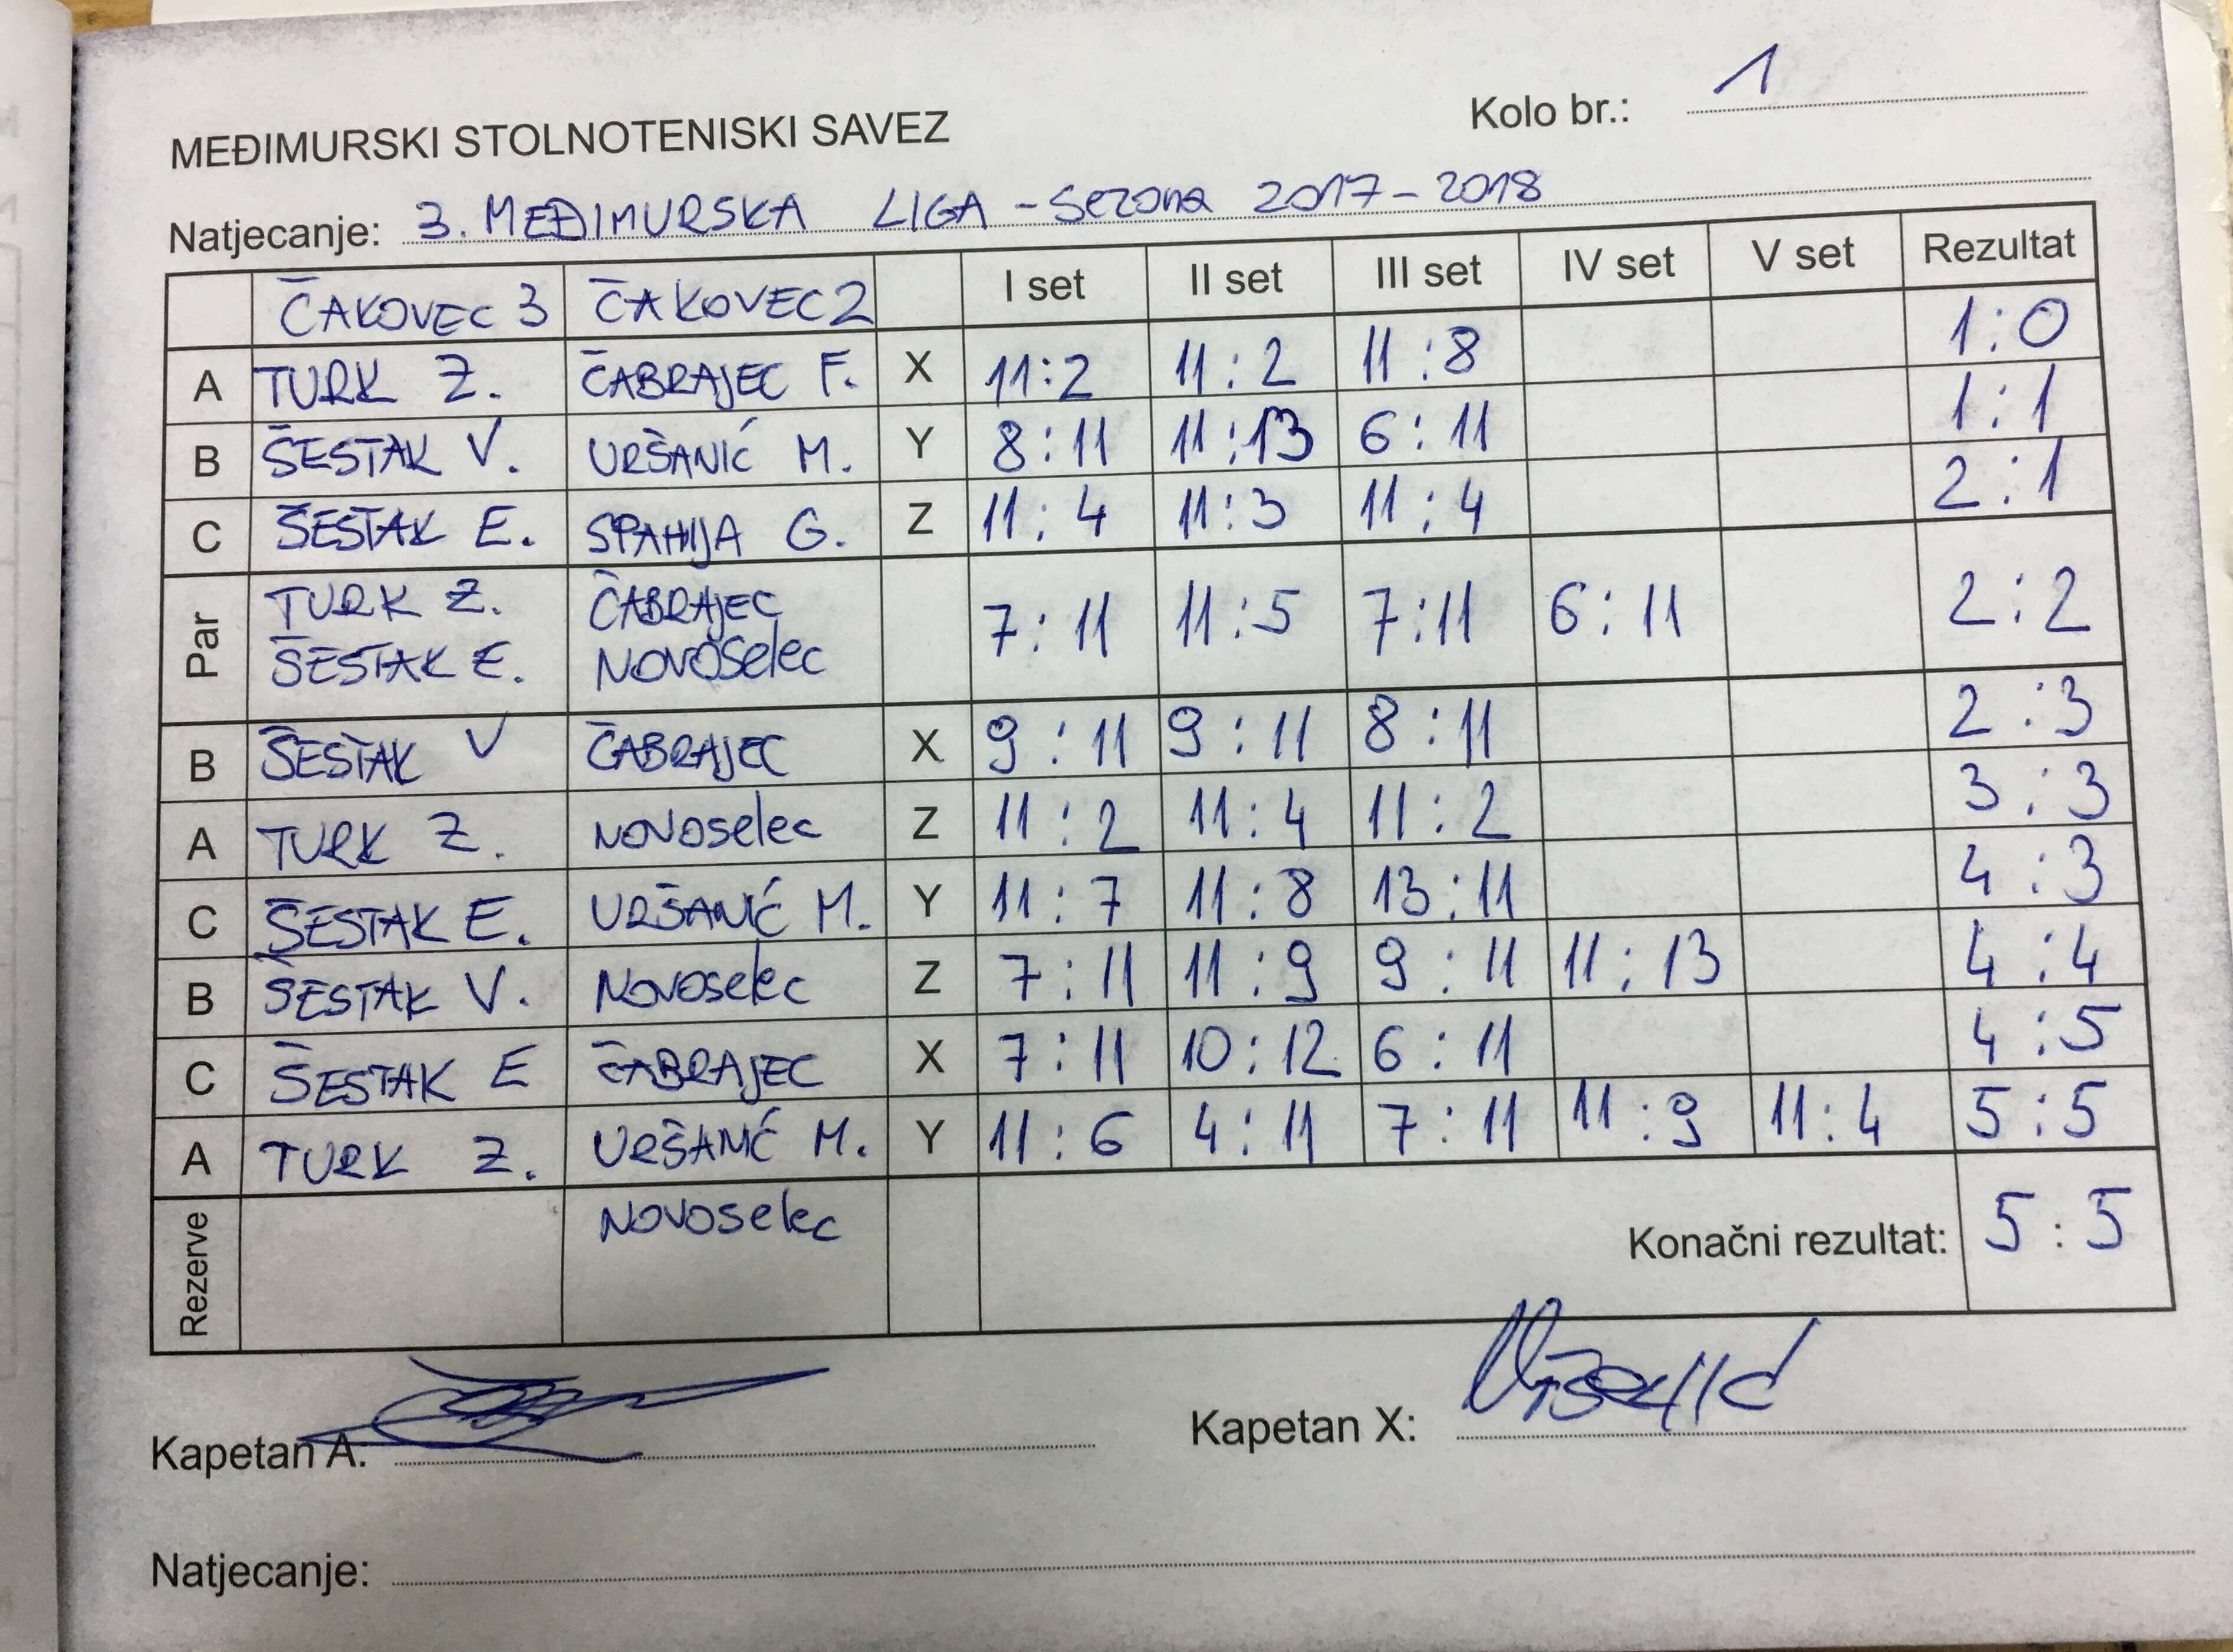 Kolo br.: 1
MEĐIMURSKI STOLNOTENISKI SAVEZ
Natjecanje: 3. MEĐIMURSKA LIGA - Sezona 2017-2018
ČAKOVEC 3 ČAKOVEC 2 I set II set III set IV set V set Rezultat
A TURK Z. ČABRAJEC F. X 11:2 11:2 11:8 1:0
B ŠESTAK V. URŠANIĆ M. Y 8:11 11:13 6:11 1:1
C ŠESTAK E. SPAHIJA G. Z 11:4 11:3 11:4 2:1
Par TURK Z. ČABRAJEC 7:11 11:5 7:11 6:11 2:2
ŠESTAK E. NOVOSelec
B ŠESTAK V ČABRAJEC X 9:11 9:11 8:11 2:3
A TURK Z. NOVOSelec Z 11:2 11:4 11:2 3:3
C ŠESTAK E. URŠANIĆ M. Y 11:7 11:8 13:11 4:3
B ŠESTAK V. NOVOSelec Z 7:11 11:9 9:11 11:13 4:4
C ŠESTAK E ČABRAJEC X 7:11 10:12 6:11 4:5
A TURK Z. URŠANIĆ M. Y 11:6 4:11 7:11 11:9 11:4 5:5
Rezerve NOVOSelec Konačni rezultat: 5:5
Kapetan A: Kapetan X:
Natjecanje: